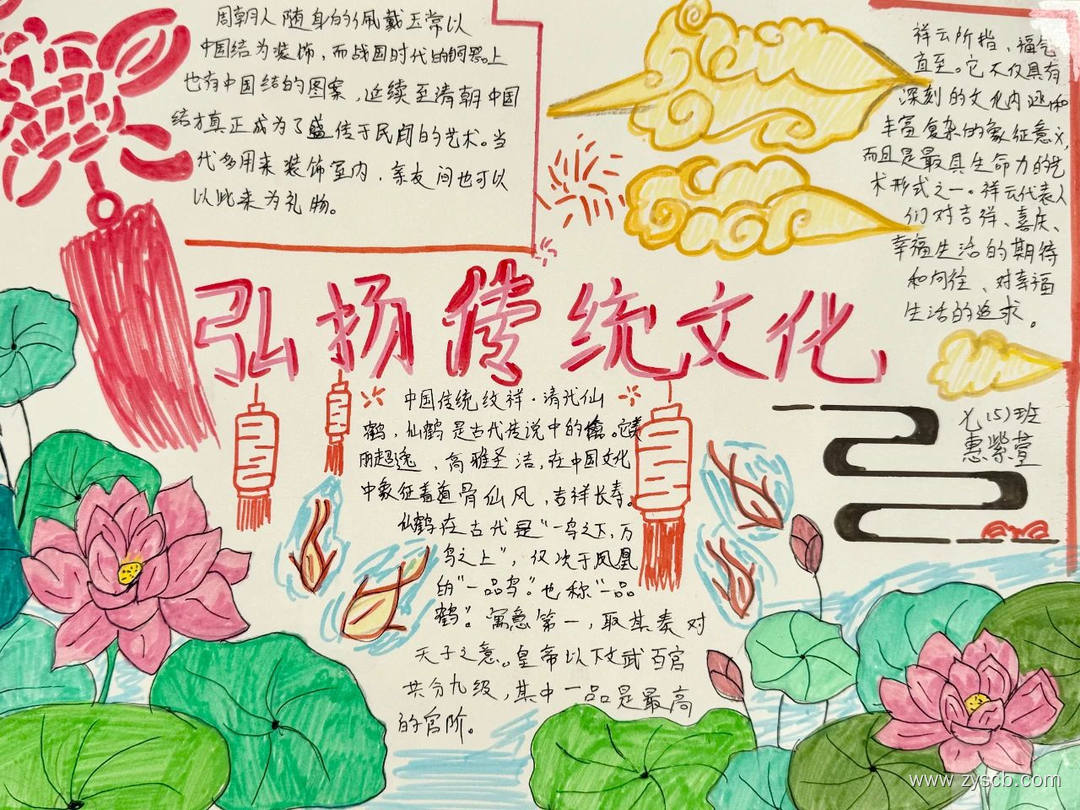 周朝人随身的佩戴玉常以
中国结为装饰,而战国时代的铜器上
也有中国结的图案,延续至清朝中国
结才真正成为了盛传于民间的艺术。当
代多用来装饰室内,亲友间也可以
以此来为礼物。
祥云所指,福气
直至。它不仅具有
深刻的文化内涵和
丰富复杂的象征意义,
而且是最具生命力的艺
术形式之一。祥云代表人
们对吉祥、喜庆、
幸福生活的期待
和向往、对幸福
生活的追求。
弘扬传统文化
中国传统纹祥·清代仙
鹤,仙鹤是古代传说中的。它美
丽超逸,高雅圣洁,在中国文化
中象征着道骨仙风,吉祥长寿。
仙鹤在古代是“一鸟之下,万
鸟之上”,仅次于凤凰
的“一品鸟”。也称“一品
鹤”。寓意第一,取其奏对
天子之意。皇帝以下文武百官
共分九级,其中一品是最高
的官阶。
七(5)班
惠紫萱
www.zyscb.com